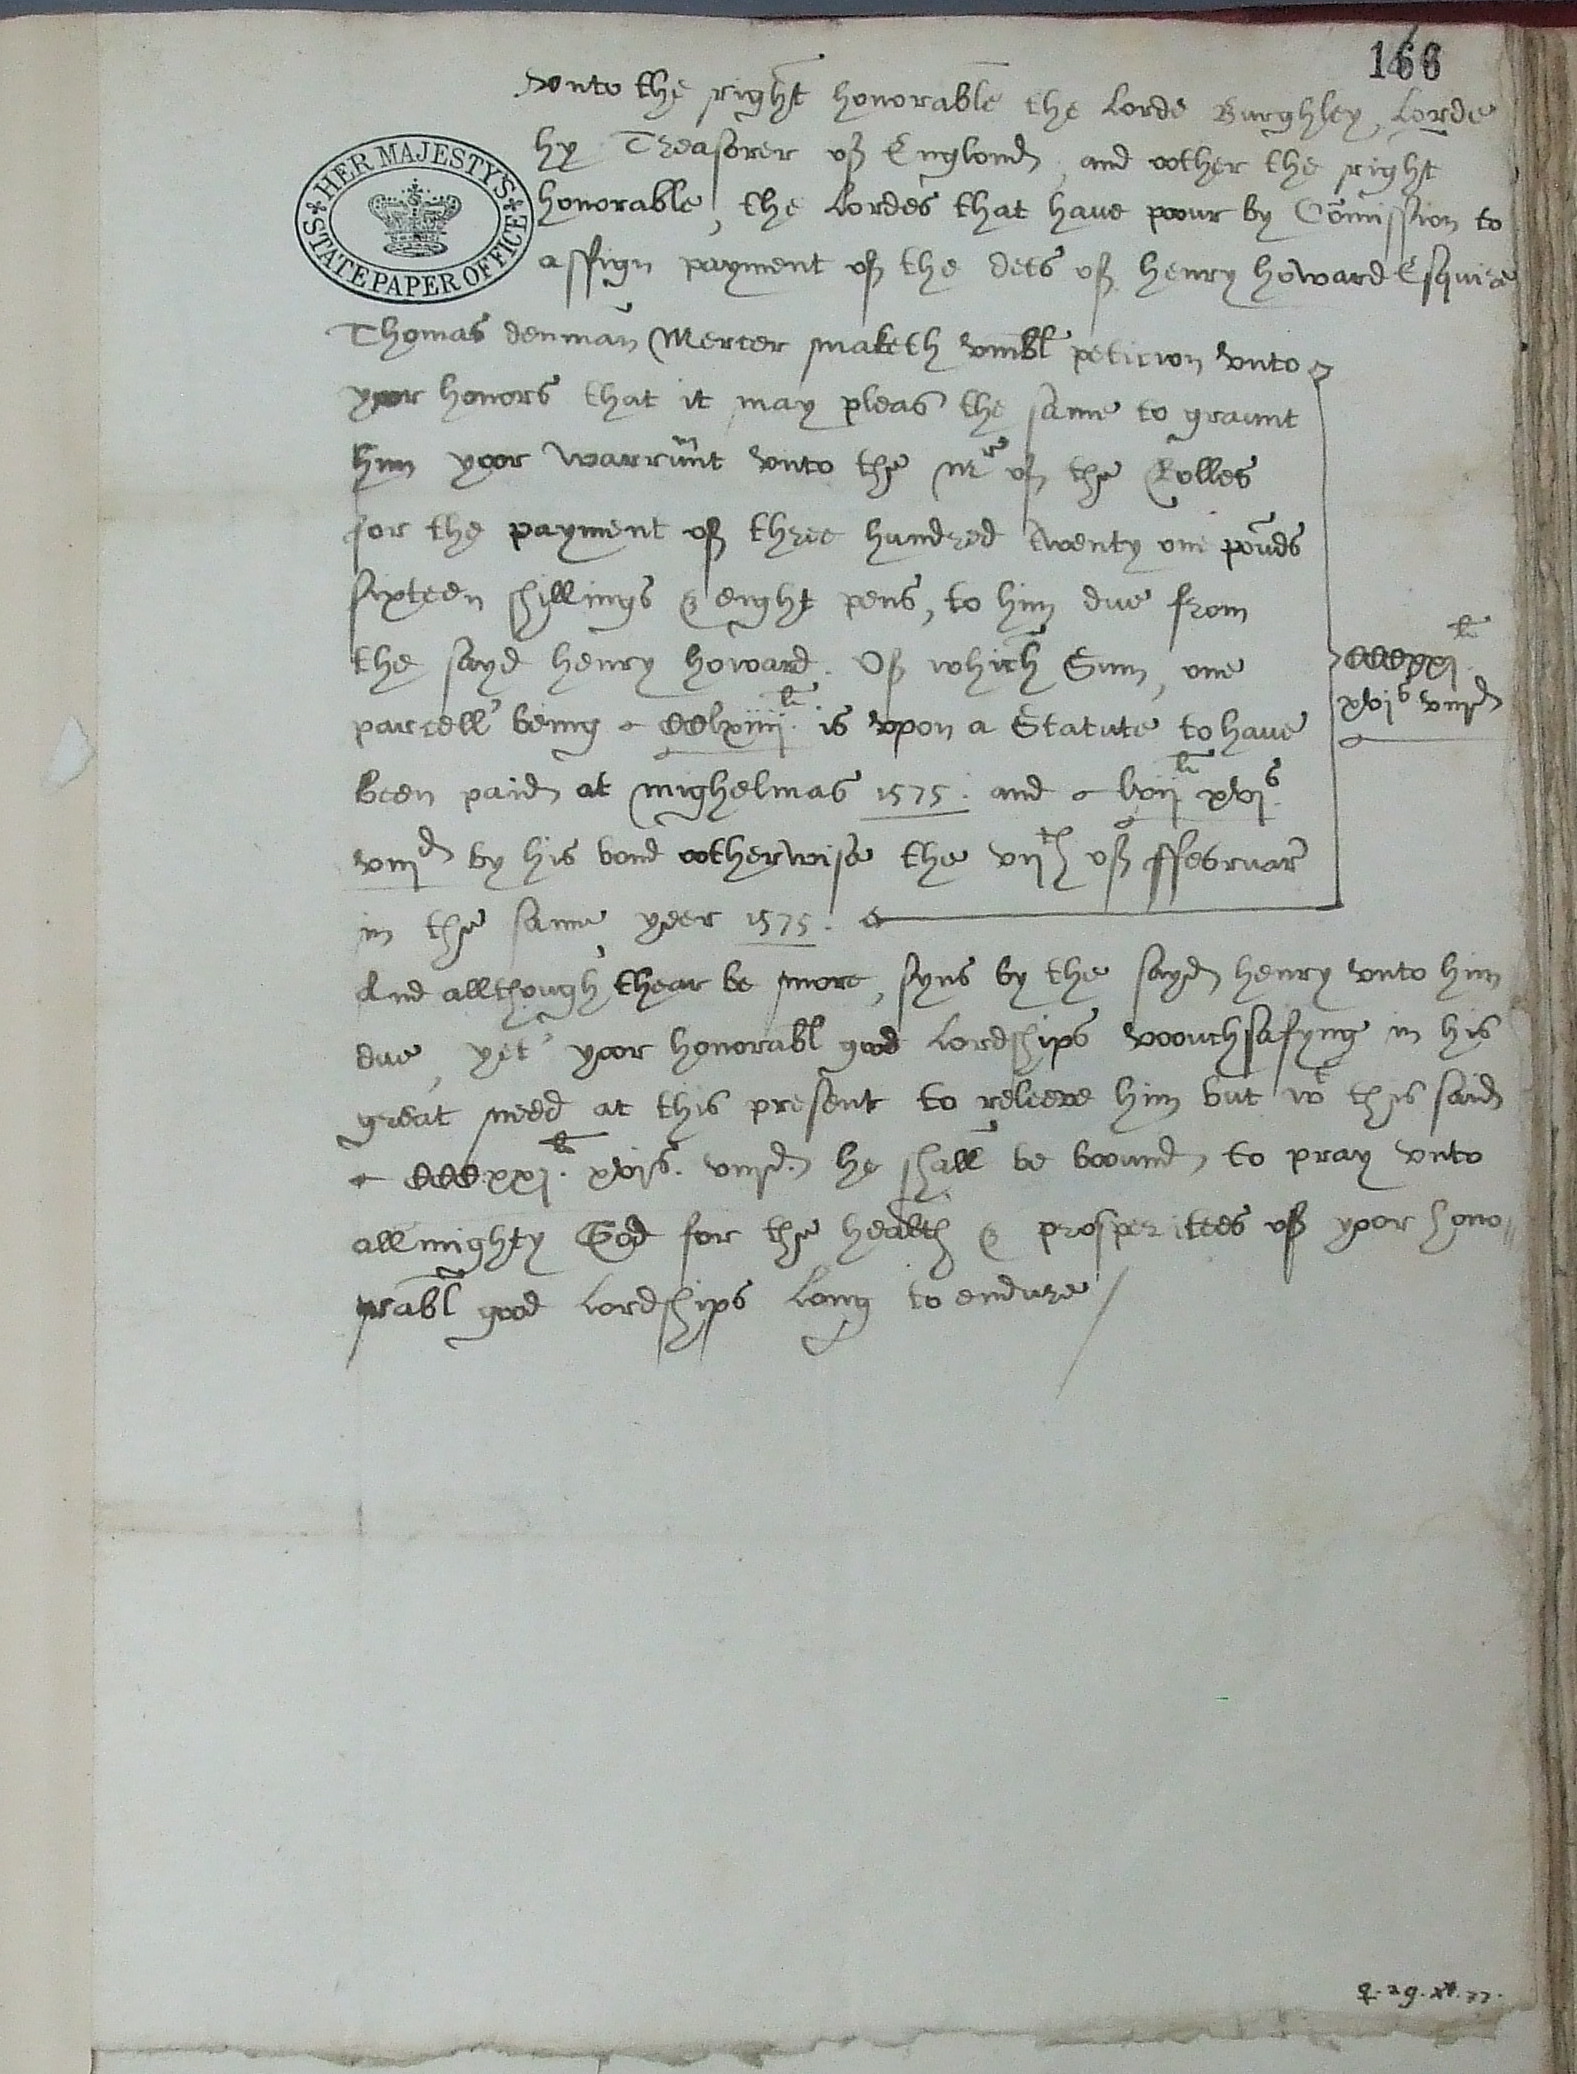 166
vnto the right honorable the Lorde Burghley, Lorde
hy Treasorer of Englond, and oother the right
honorable, the Lordes that haue poour by Comission to
HER MAJESTY'S STATE PAPER OFFICE
assign payment of the dets of Henry Howard Esquire
Thomas Denman Mercer maketh vmbl peticion vnto
yoor honors that it may pleas the same to graunt
him yoor warrunt vnto the Mr of the Rolles
for the payment of three hundred twenty one pouds
sixteen shillings & eight pens, to him due from
the sayd Henry Howard. Of which Sum, one
parcell being CClxiiii li is vpon a Statute to haue
CCCxxj li
xvj s viij d
been paid at Mighelmas 1575. and lvii li xvj s
viij d by his bond ootherwise the vijth of ffebruar
in the same yeer 1575.
And allthough thear be more, syns by the sayd Henry vnto him
due, yet yoor honorabl good Lordships voouchsafyng in his
great need at this present to releeve him but wt this said
CCCxxj li. xvj s. viij d. he shall be boound, to pray vnto
allmighty God for the health & prosperitees of yoor hono„
rabl good Lordships Long to endure /